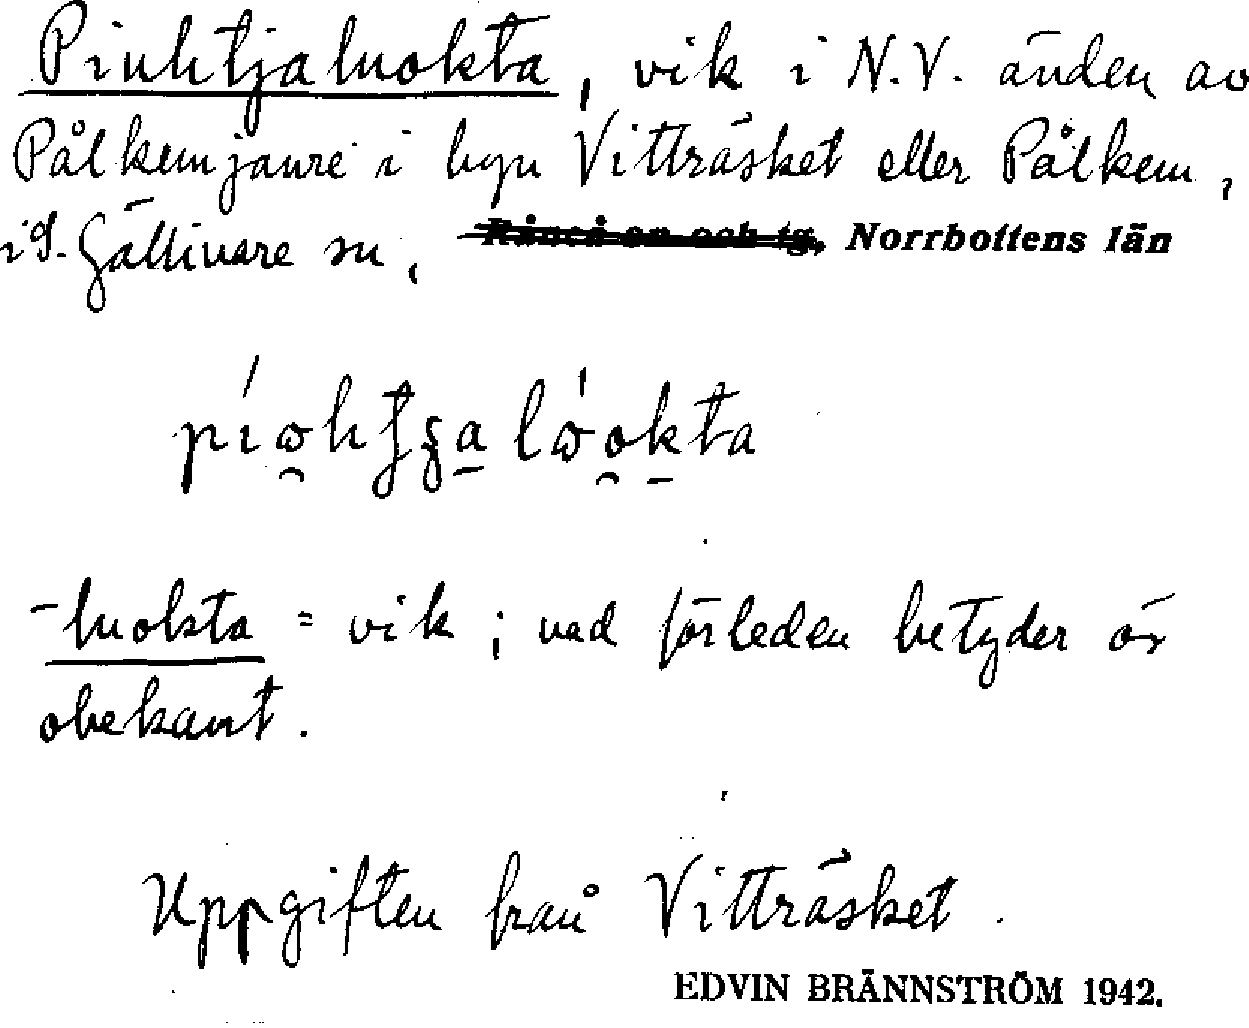 Piuhtjaluokta, vik i N.V. änden av
Pålkemjaure i byn Vitträsket eller Pålkem,
i Gällivare sn, Norrbottens län
-luokta = vik ; vad förleden betyder är
obekant.
Uppgiften från Vitträsket.
EDVIN BRÄNNSTRÖM 1942.